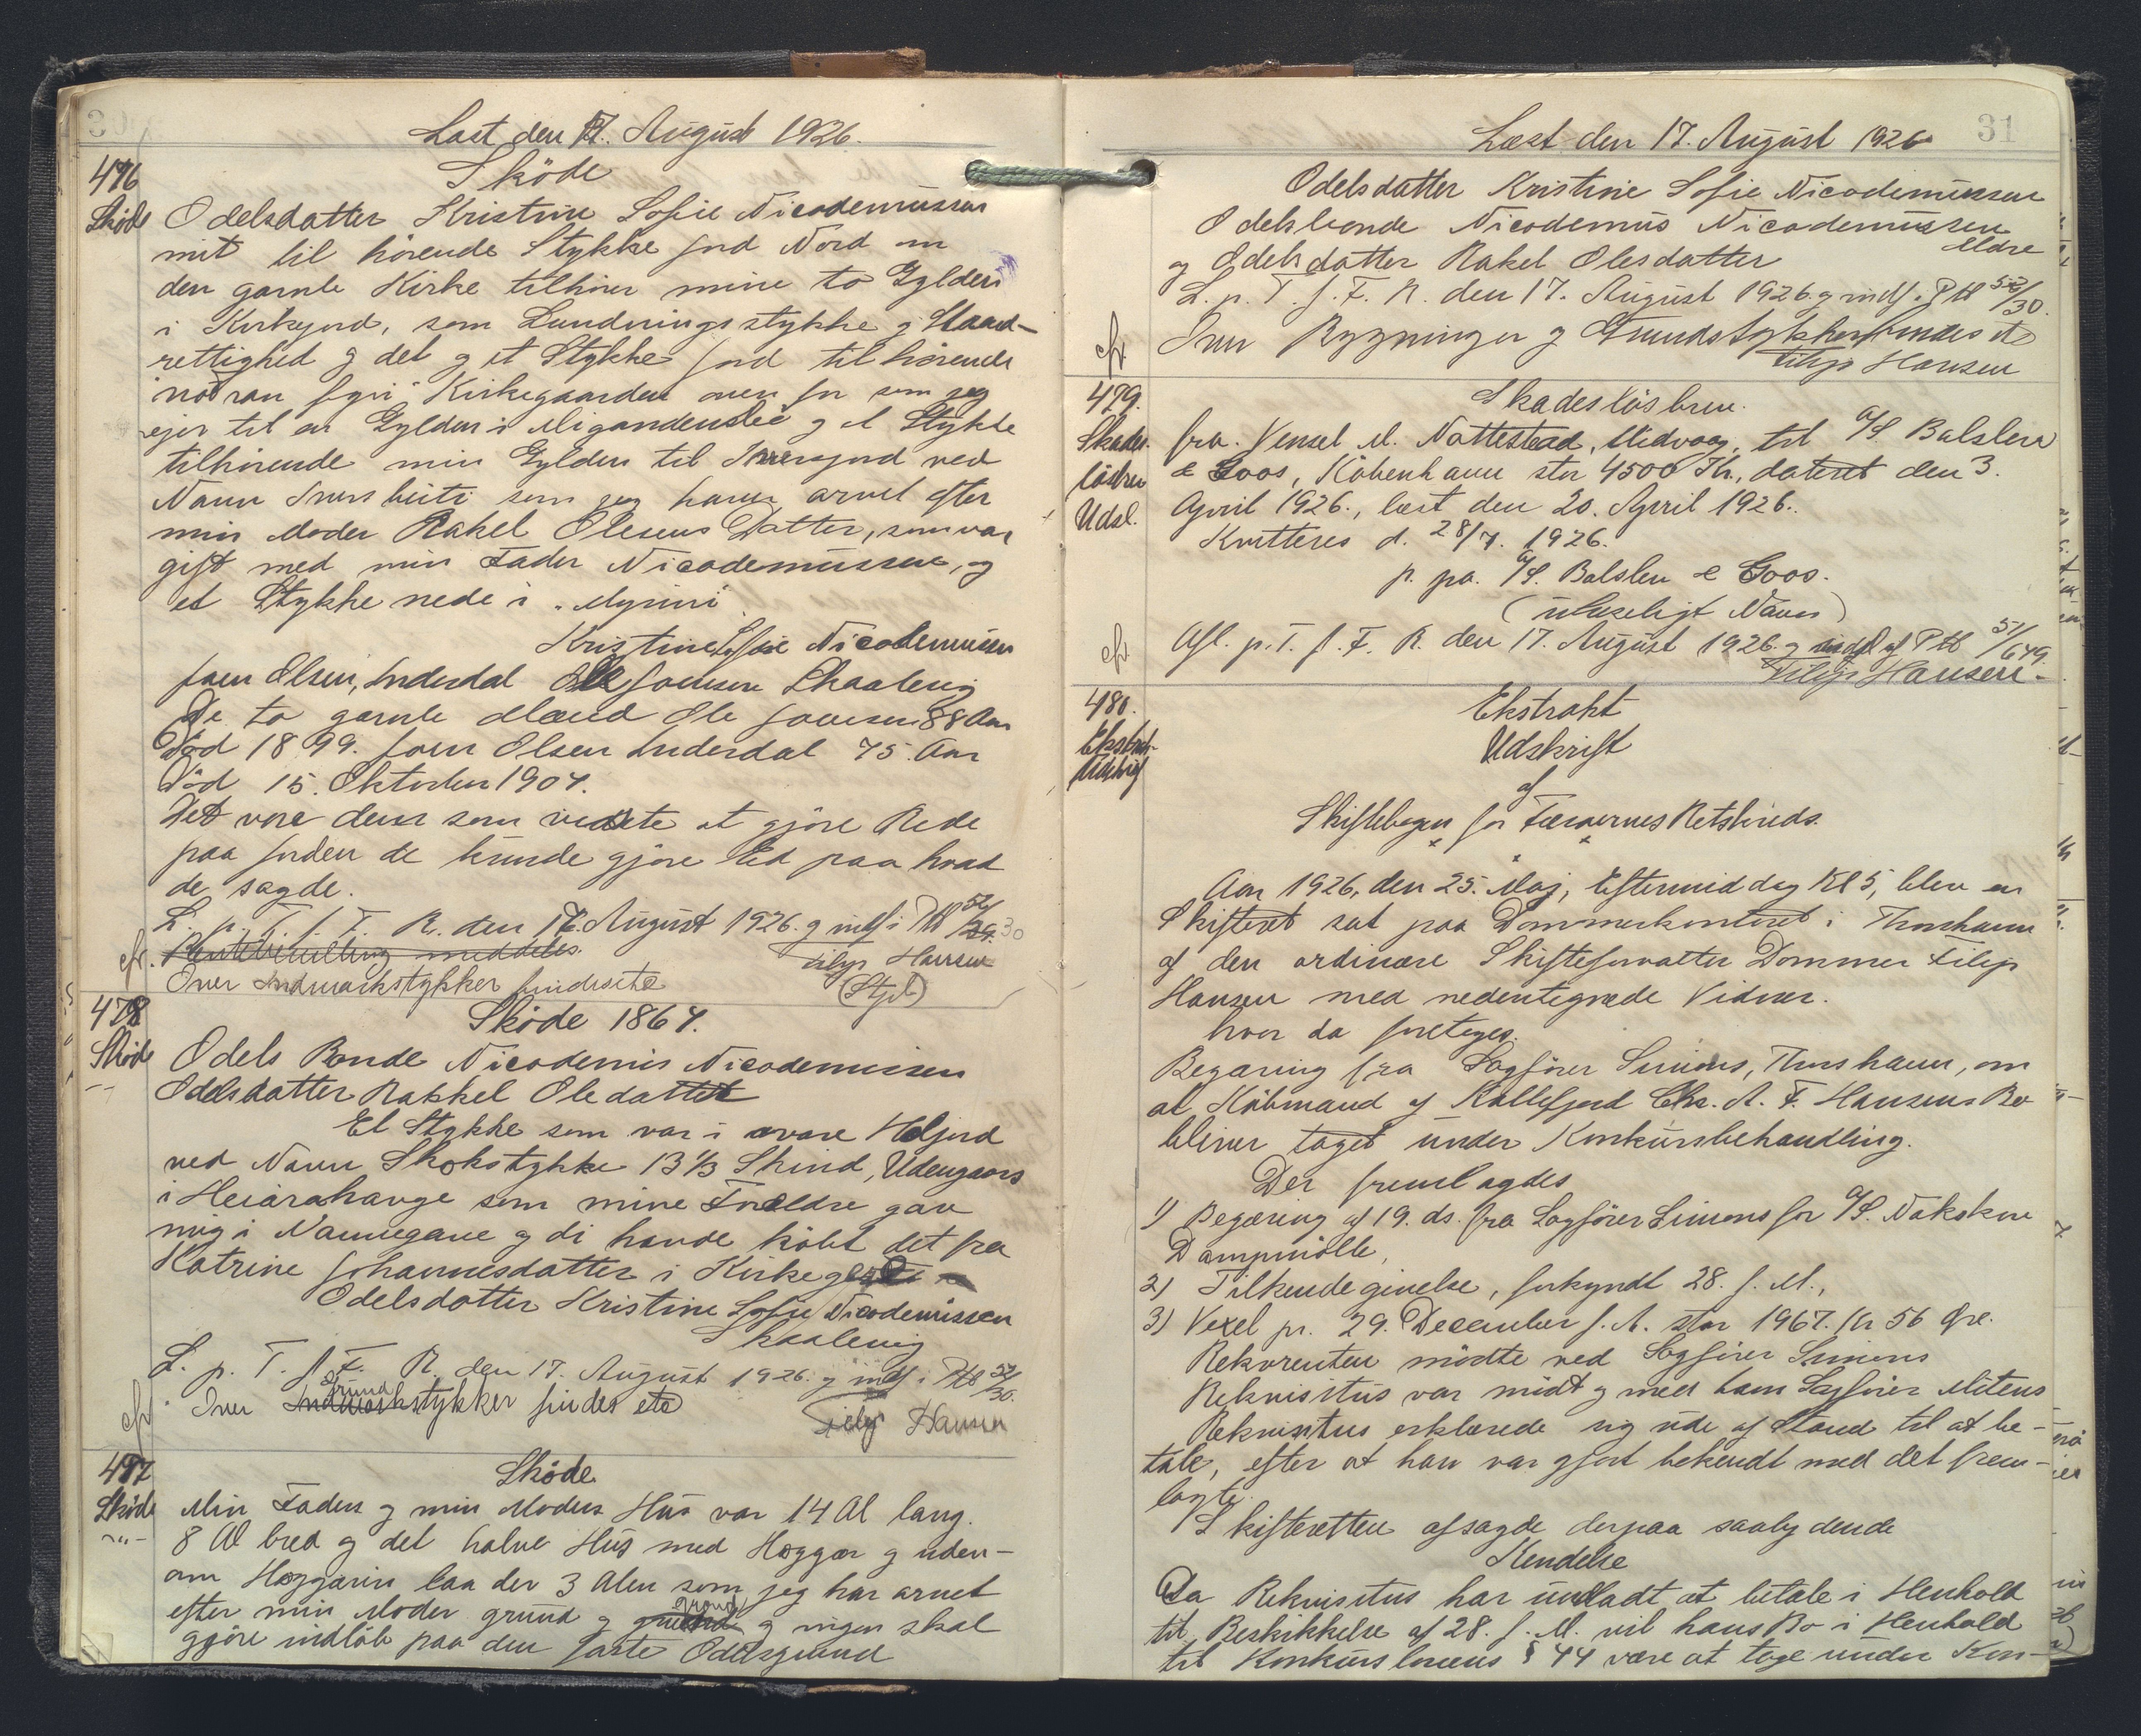 30
Læst den 17. August 1926.
476
Sköde
Sköde
Odelsdatter Kristine Sofie Nicodemussen
mit til hörende Stykke Jord Nord om
den gamle Kirke tilhörer mine to Gylden
i Kirkejord, som Lundningsstykke g Staad-
rettighed g det g et Stykke Jord til hörende
"nodran fyri" Kirkegaarden oven for som jeg
ejer til en Gylden i g et Stykke
tilhörende min Gylden til ved
Navn som jeg haver arvet efter
min Moder Rakel Olesens Datter, som var
gift med min Fader Nicodemussen, og
et Stykke nede i "Myrini
Kristine Sofie Nicodemussen
Joen Olsen, Inderdal Ole Joensen Skaalevig
De to gamle Mænd Ole Joensen 88 Aar
Död 1899. Joen Olsen Inderdal 75. Aar
Död 15. Oktober 1904.
Det vare dem som vidste at gjöre Rede
paa Jorden de kunde gjöre Ed paa hvad
de sagde.
L. p. T. f. F. R. den 17. August 1926. g indf i Ptb 52/30
Attestbemærkning meddeles.
Filip Hansen
cfr. Over Indmarkstykker findes etc
(Stpl.)
478
Sköde 1867.
Sköde
Odels Bonde Nicodemus Nicodemussen
Odelsdatter Rakkel Oledatter
Et Stykke som var i vore Heljord
ved Navn Skokstykke 13 1/3 Skind, Udengaars
i Heiarahauge som mine Forældre gav
mig i Navnegave g di havde köbt det fra
Katrine Johannesdatter i
Odelsdatter Kristine Sofie Nicodemussen
Skaalevig
L. p. T. f. F. R. den 17. August 1926. g indf. i Ptb 52/30.
cfr. Over Grundstykker findes etc
Filip Hansen
477
Sköde
Sköde
-"-
Min Faders g min Moders Hus var 14 Al lang.
8 Al bred g det halve Hus med Hoggar g uden-
om Hoggarin laa der 3 Alen som jeg har arvet
efter min Moder grund g grund g ingen skal
gjöre indlöb paa den faste Odelsgrund
31
Læst den 17. August 1926
Odelsdatter Kristine Sofie Nicodemussen
Odelsbonde Nicodemus Nicodemussen
eldre
og Odelsdatter Rakel Olesdatter
L. p. T. f. F. R. den 17. August 1926. g indf. i Ptb 52/30.
cfr Over Bygninger g Grundstykker findes etc
Filip Hansen
479.
Skadeslösbrev.
Skades-
lösbrev
Udsl.
fra Vensel M. Nattestad, Midvaag, til A/S. Balslev
& Goos, Köbenhavn stor 4500 Kr., dateret den 3.
April 1926., læst den 20. April 1926..
Kvitteres d. 28/7. 1926.
p. pa. A/S. Balslev & Goos.
(ulæseligt Navn)
cfr Afl. p. T. f. F. R. den 17. August 1926. g udsl af Ptb 51/649.
Filip Hansen.-
480.
Ekstrakt-
Udskrift
Ekstrakt
Udskrift
af
Skiftebogen for Færøernes Retskreds.
Aar 1926, den 25. Maj, Eftermiddag Kl 5, blev en
Skifteret sat paa Dommerkontoret i Thorshavn
af den ordinære Skifteforvalter Dommer Filip
Hansen med nedentegnede Vidner.
hvor da foretoges.
Begæring fra Sagförer Simons, Thorshavn, om
at Köbmand af Kollefjord Chr. A. F. Hansens Bo
bliver taget under Konkursbehandling.
Der fremlagdes
1) Begæring af 19. ds. fra Sagförer Simons for A/S. Nakskov
Dampmölle,
2) Tilkendegivelse, forkyndt 28. f. M.,
3) Vexel pr. 29. December f. A. stor 1967. Kr 56 Øre.
Rekvirenten mödte ved Sagförer Simons
Rekvisitus var mödt g med ham Sagförer Mitens
Rekvisitus erklærede sig ude af Stand til at be-
tale, efter at han var gjort bekendt med det frem-
lagte.
Skifteretten afsagde derpaa saalydende
Kendelse
Da Rekvisitus har undladt at betale i Henhold
til Beskikkelse af 28. f. M. vil hans Bo i Henhold
til Konkurslovens § 44 være at tage under Kon-